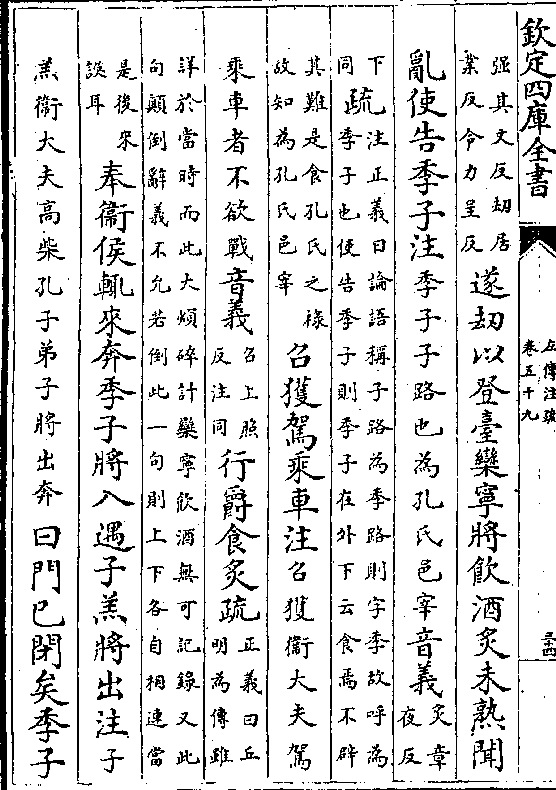 欽定四庫全書
左傳注疏
卷五十九
三十四
强其丈反劫居
業反令力呈反
遂劫以登臺欒寧將飲酒炙未熟聞
亂使告季子注季子子路也為孔氏邑宰音義
炙章
夜反
下
同
疏
注正義曰論語稱子路為季路則字季故呼為
季子也使告季子則季子在外下云食焉不辟
其難是食孔氏之祿
故知為孔氏邑宰
召獲駕乘車注召獲衞大夫駕
乘車者不欲戰音義
召上照
反注同
行爵食炙疏
正義曰丘
明為傳雖
詳於當時而此大煩碎計欒寧飲酒無可記錄又此
句顛倒辭義不允若倒此一句則上下各自相連當
是後來
誤耳
奉衞侯輒來奔季子將入遇子羔將出注子
羔衞大夫高柴孔子弟子將出奔曰門已閉矣季子